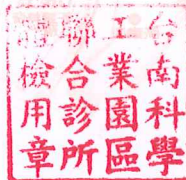 台南科學
工業園區
聯合診所
體檢用章